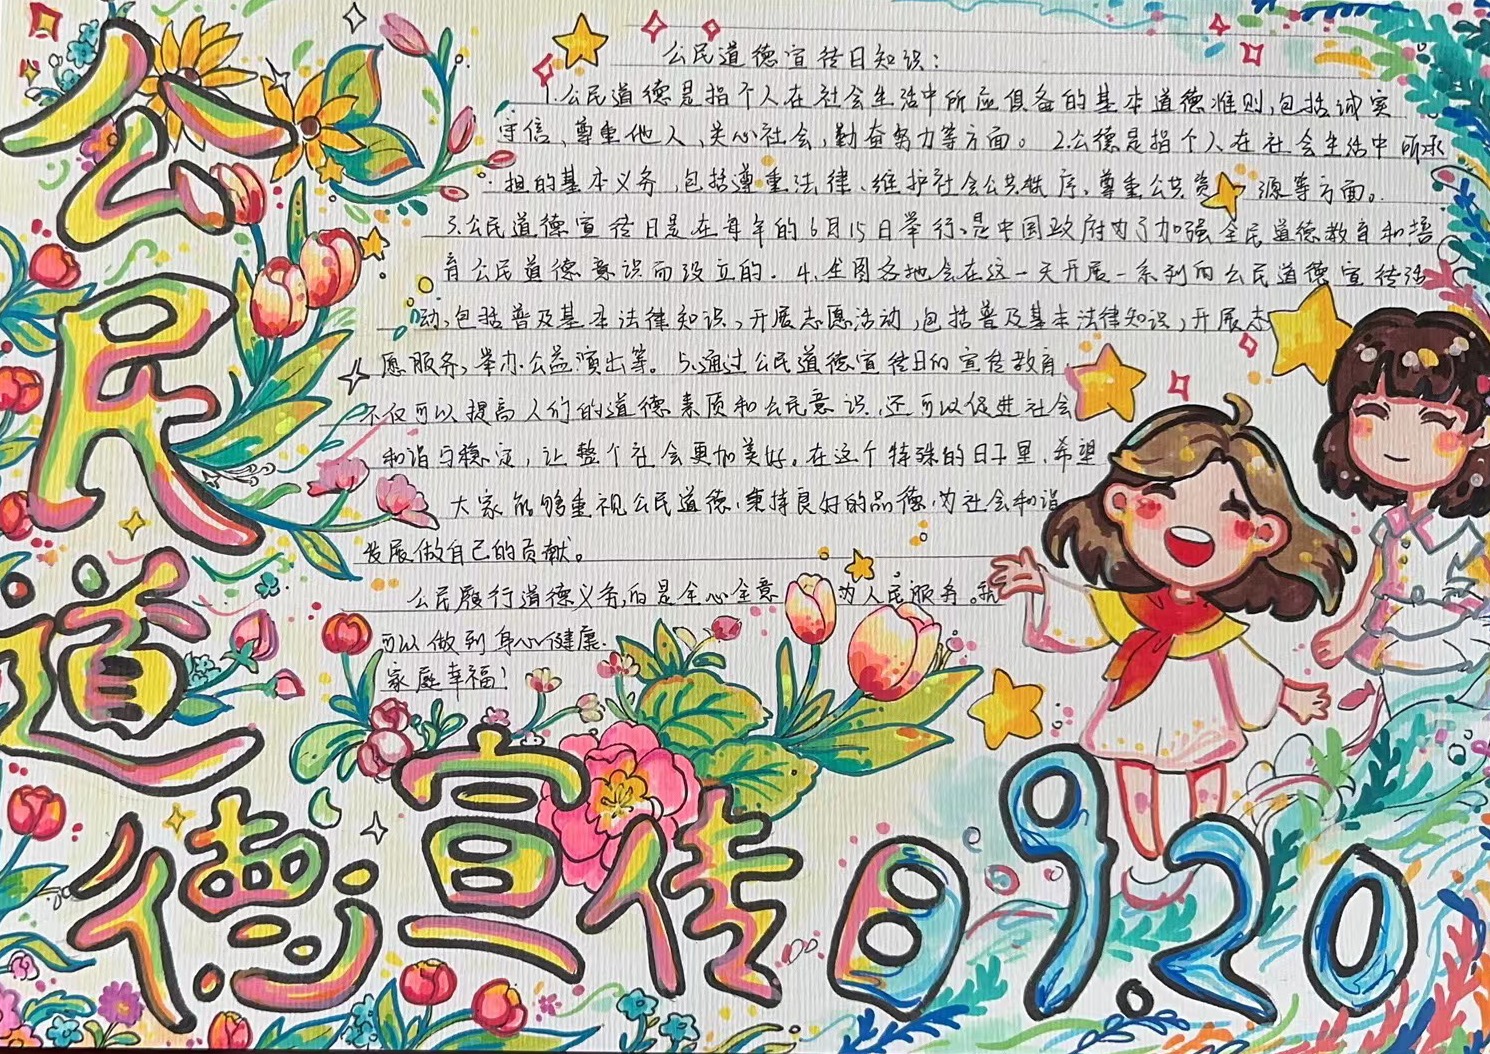 公民道德宣传日9.20
公民道德宣传日知识：
1.公民道德是指个人在社会生活中所应俱备的基本道德准则，包括诚实
守信，尊重他人，关心社会，勤奋努力等方面。2.公德是指个人在社会生活中所承
担的基本义务，包括遵重法律、维护社会公共秩序、尊重公共资源等方面。
3.公民道德宣传日是在每年的6月15日举行，是中国政府为了加强全民道德教育和培
育公民道德意识而设立的。4.全国各地会在这一天开展一系列的公民道德宣传活
动，包括普及基本法律知识，开展志愿活动，包括普及基本法律知识，开展志
愿服务，举办公益演出等。5.通过公民道德宣传日的宣传教育
不仅可以提高人们的道德素质和公民意识，还可以促进社会
和谐与稳定，让整个社会更加美好。在这个特殊的日子里，希望
大家能够重视公民道德，秉持良好的品德，为社会和谐
发展做自己的贡献。
公民履行道德义务，的是全心全意为人民服务。就
可以做到身心健康.
家庭幸福！